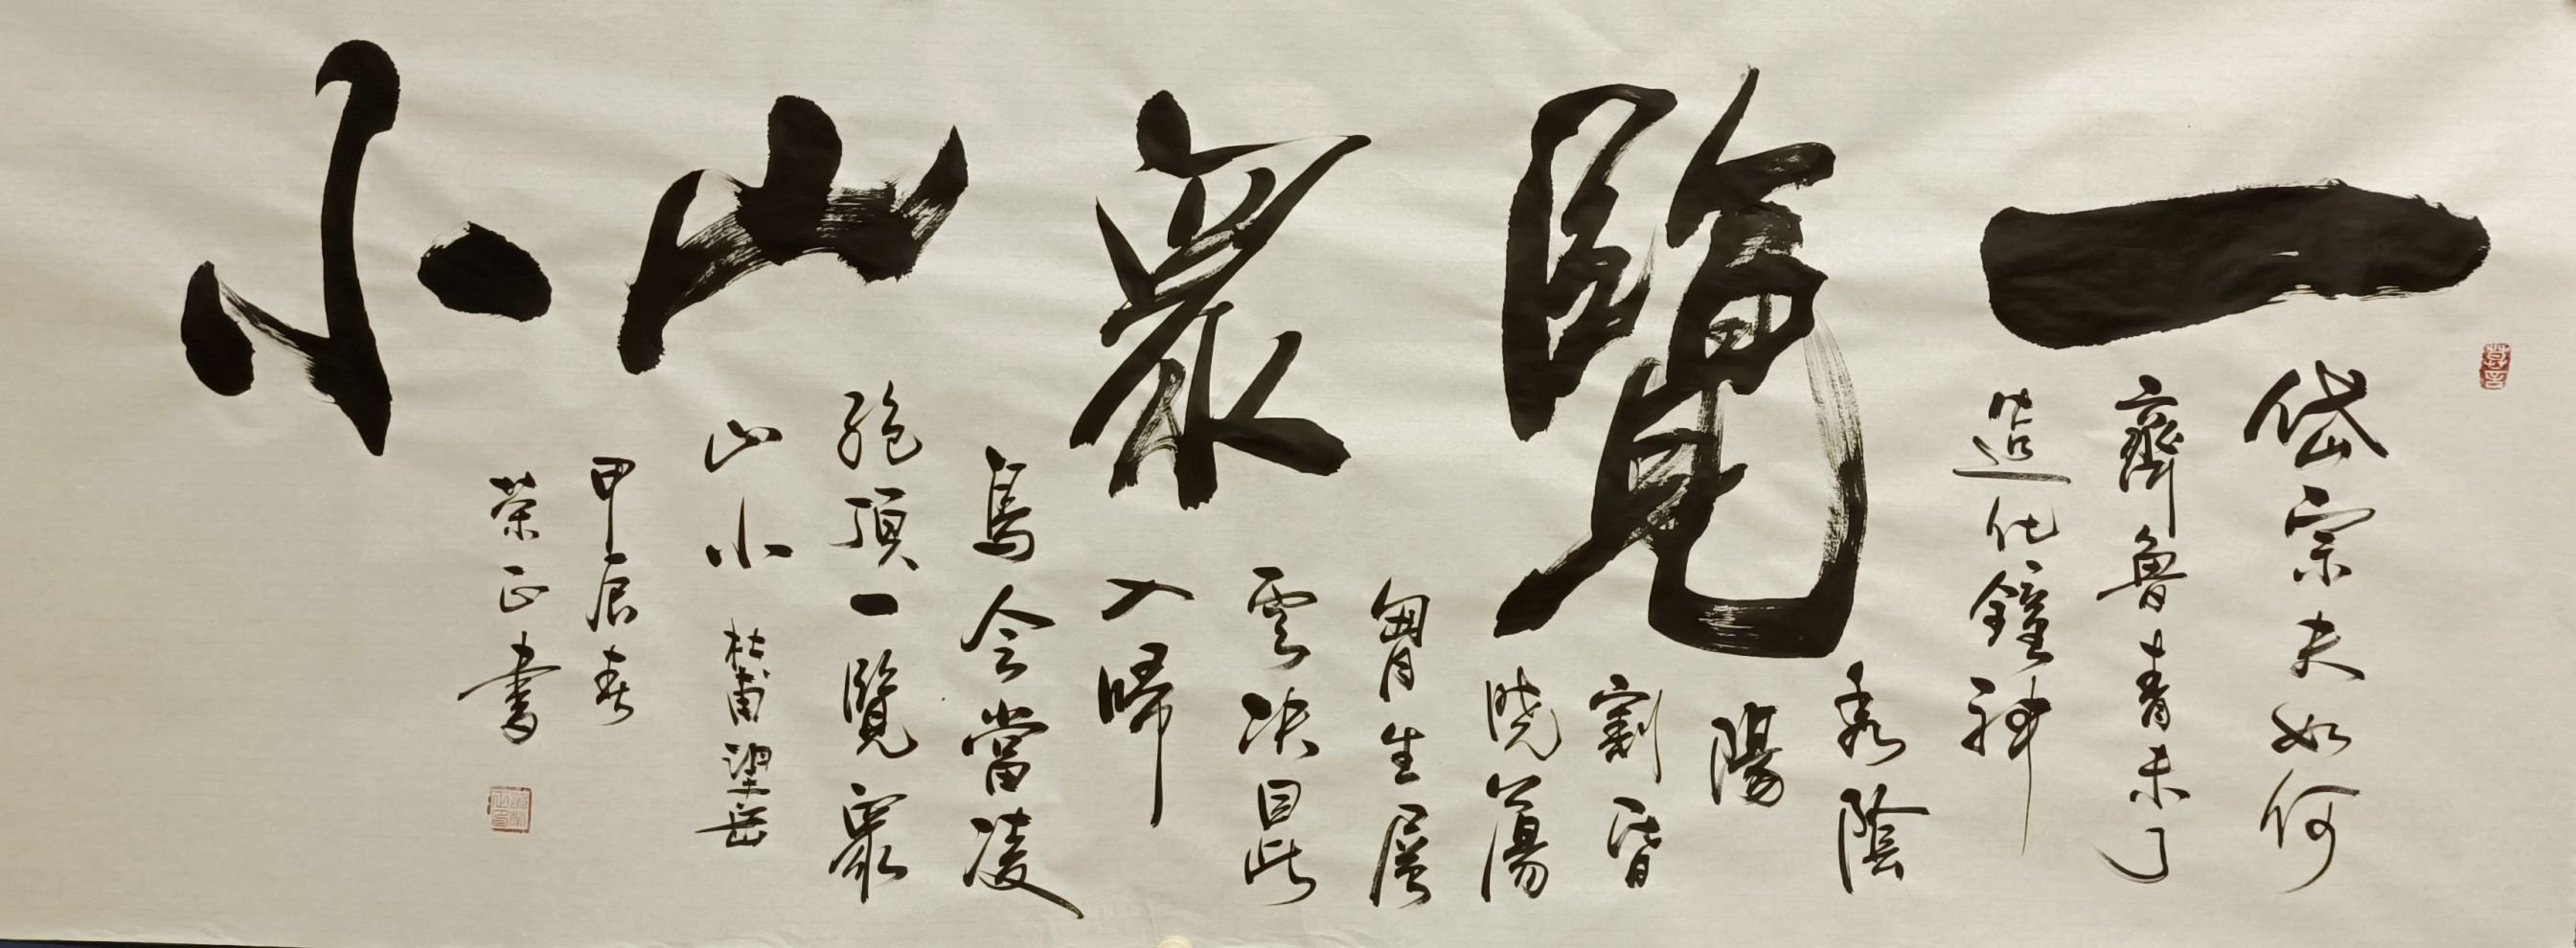 一覽衆山小
岱宗夫如何
齊魯青未了
造化鐘神
秀陰
陽
割昏
曉蕩
胷生層
雲决目此
入歸
鳥会當凌
絶頂一覽衆
山小 杜甫望岳
甲辰春
荣正書